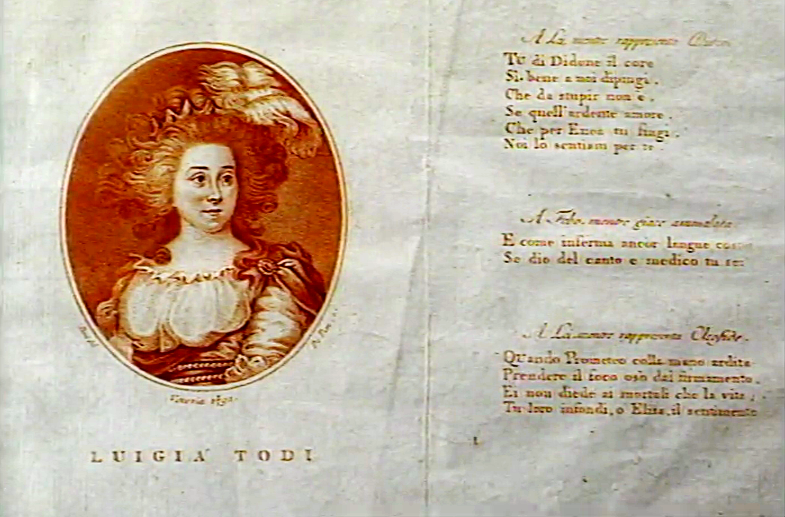 Venezia
LUIGIA TODI
A La mentre rappresenta
Tu di Didone il core
Si bene a noi dipingi,
Che da stupir non è,
Se quell'ardente amore,
Che per Enea tu fingi,
Noi lo sentiam per te.
A Febo, mentre giace ammalata
E come inferma ancor langue
Se dio del canto e medico tu sei
A La mentre rappresenta Cleofide.
Quando Prometeo colla mano ardita
Prendere il foco osò dal firmamento,
Ei non diede ai mortali che la vita;
Tu loro infondi, o Elisa, il sentimento